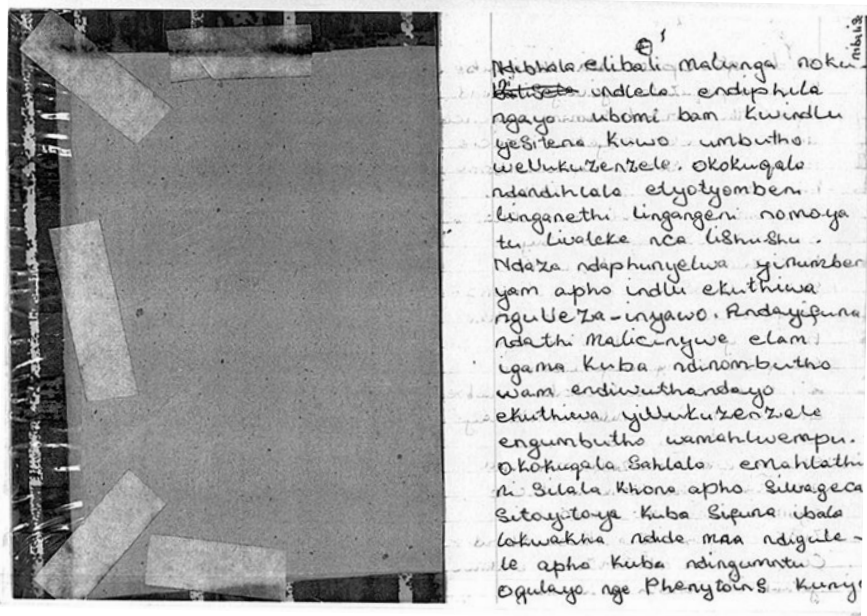 1
mbali
Ndibhala elibali malunga noku-
indlela endiphila
ngayo ubomi bam kwindlu
yesitena kuwo umbutho
weVukuzenzele. Okokuqala
ndandihlala etyotyombeni
linganethi lingangeni nomoya
tu livaleke nca lishushu.
Ndaza ndaphunyelwa yinumber
yam apho indlu ekuthiwa
nguVeza-inyawo. Andayifuna
ndathi malicinywe elam
igama kuba ndinombutho
wam endiwuthandayo
ekuthiwa yiVukuzenzele
engumbutho wamahlwempu.
Okokuqala sahlala emahlathi
ni silala khona apho silwageca
sitoyitoya kuba sifuna ibala
lokwakha ndide mna ndigule-
le apho kuba ndingumntu
ogulayo nge Phenytoins kuny-